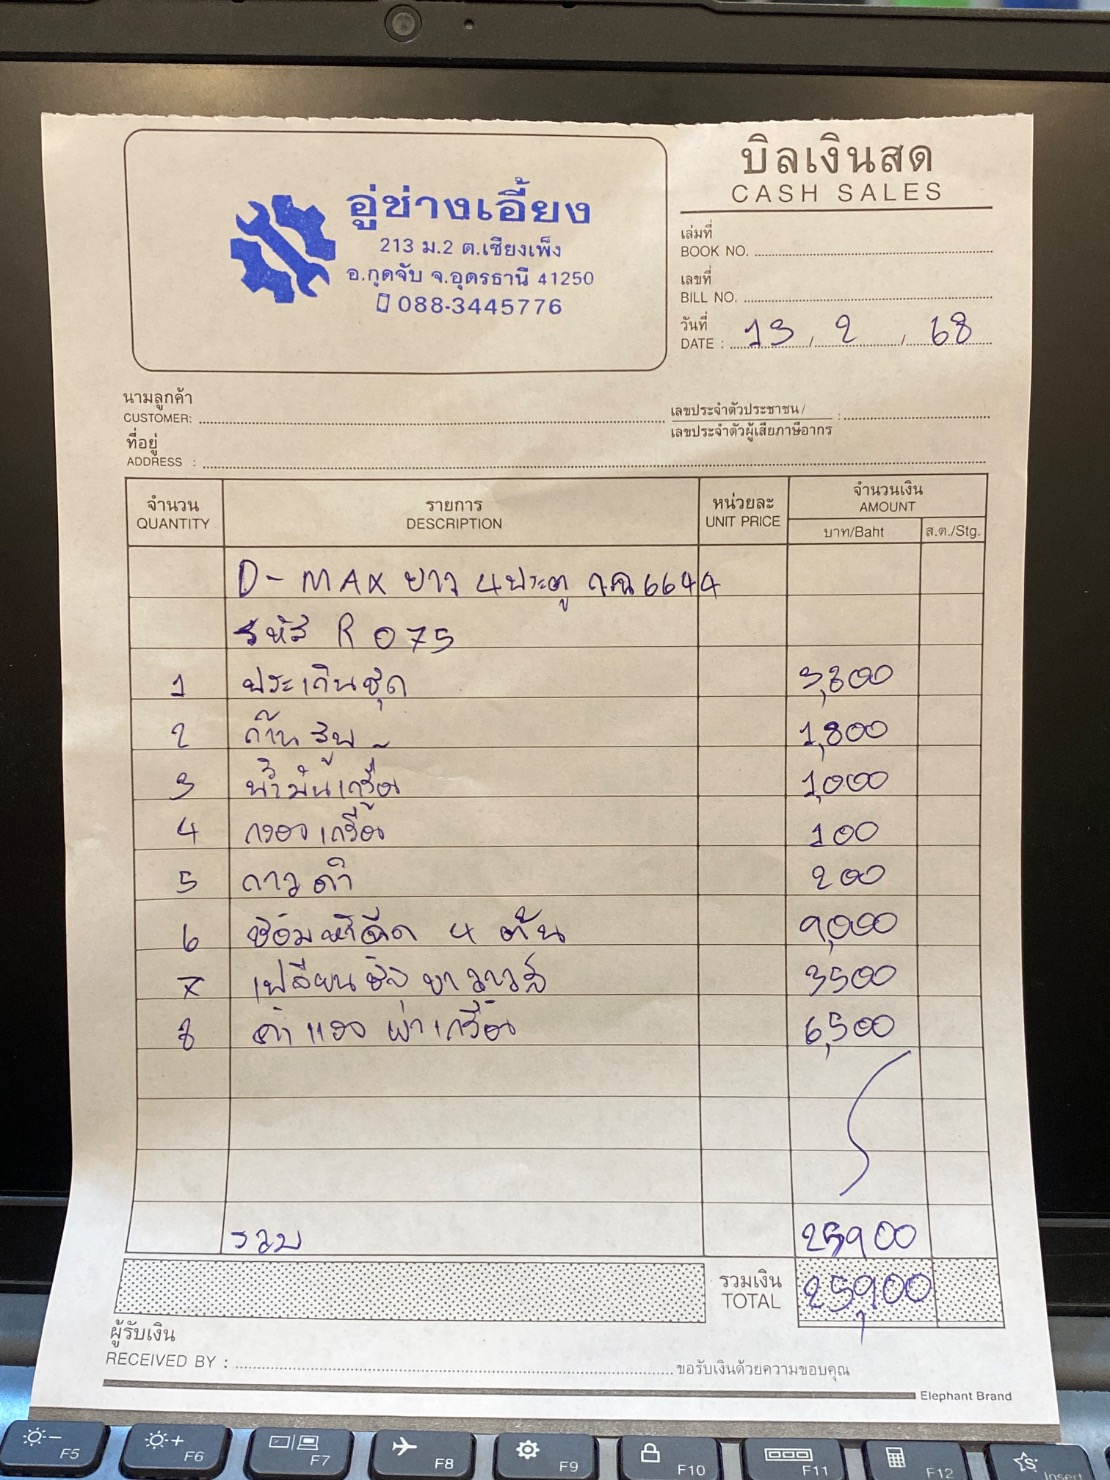 บิลเงินสด
CASH SALES
อู่ช่างเอี้ยง
213 ม.2 ต.เชียงเพ็ง
อ.กุดจับ จ.อุดรธานี 41250
088-3445776
เล่มที่
BOOK NO.
เลขที่
BILL NO.
วันที่
DATE : 13 / 2 / 68
นามลูกค้า
CUSTOMER:
เลขประจำตัวประชาชน /
เลขประจำตัวผู้เสียภาษีอากร :
ที่อยู่
ADDRESS :
จำนวน รายการ หน่วยละ จำนวนเงิน
QUANTITY DESCRIPTION UNIT PRICE AMOUNT
บาท/Baht ส.ต./Stg.
D-MAX ยาว 4ประตู 6644
รหัส R 075
1 ประเก็นชุด 3,800
2 ก้านสูบ 1,800
3 น้ำมันเครื่อง 1,000
4 กรองเครื่อง 100
5 กาวดำ 200
6 ซ่อมหัวฉีด 4 ตัน 9,000
7 เปลี่ยนซีลยาวาวล์ 3500
8 ค่าแรงผ่าเครื่อง 6,500
รวม 25900
รวมเงิน
TOTAL 25,900
ผู้รับเงิน
RECEIVED BY : ขอรับเงินด้วยความขอบคุณ
Elephant Brand
F5
F6
F7
F8
F9
F10
F11
F12
Insert